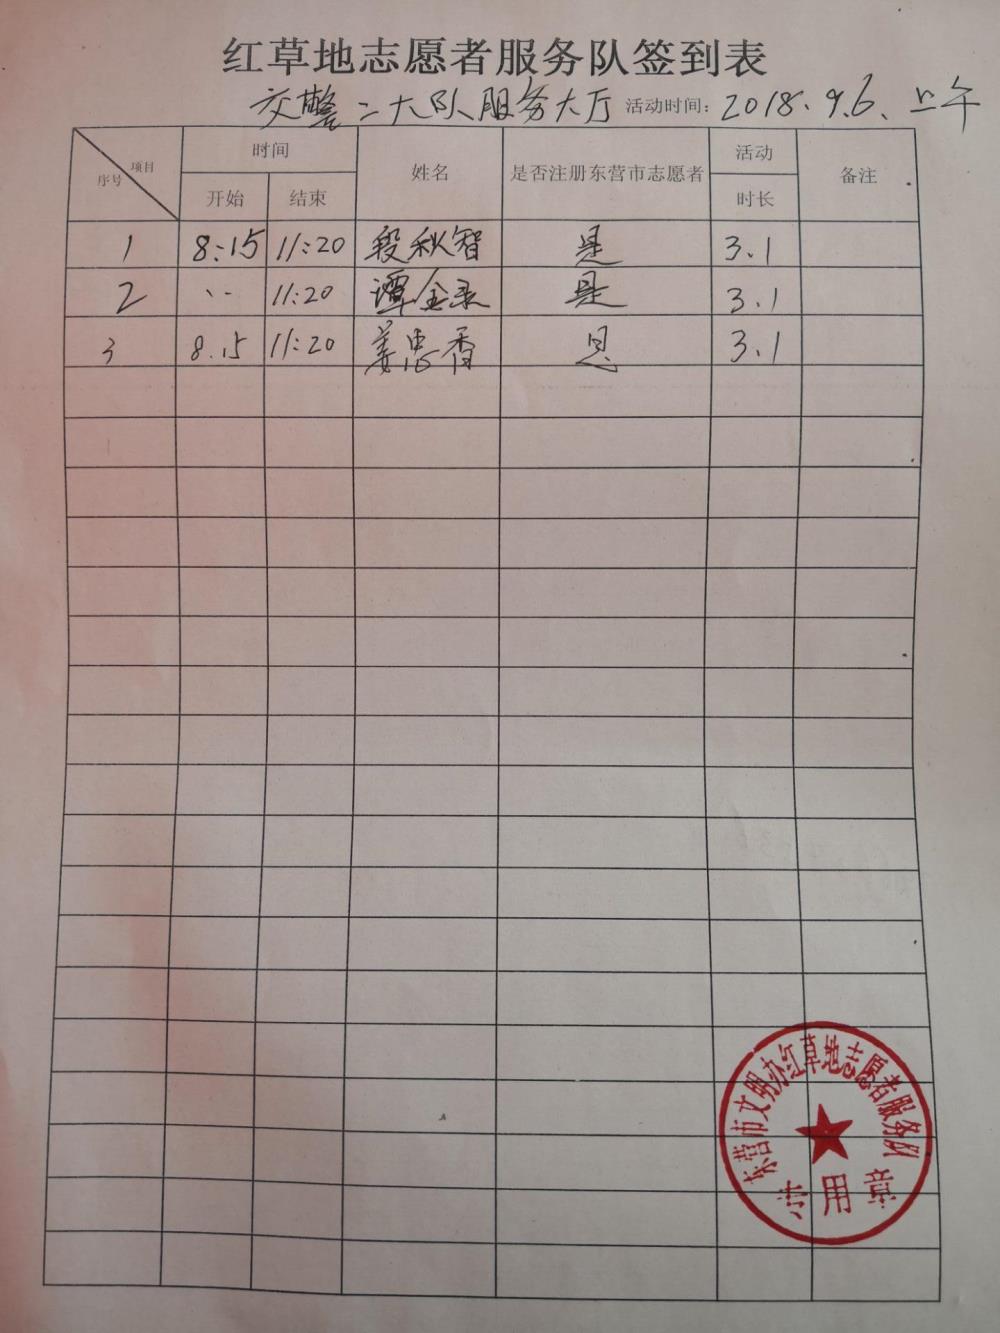 红草地志愿者服务队签到表
交警二大队服务大厅 活动时间: 2018.9.6.上午
项目 序号 时间 姓名 是否注册东营市志愿者 活动 备注
开始 结束 时长
1 8:15 11:20 段秋智 是 3.1
2 、、 11:20 谭金录 是 3.1
3 8.15 11:20 姜忠香 是 3.1
东营市文明办红草地志愿者服务队
专用章